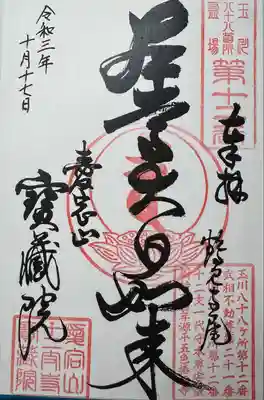 玉川
八十八ヶ所
霊場
第十一番
奉拝
大日如来
愛宕山
寶蔵院
令和三年
十月十七日
玉川八十八ヶ所第十一番
武相不動尊第二十一番
愛宕山